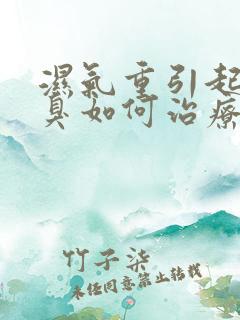 濕氣重引起
臭如何治療
竹子柒
未经同意禁止转载